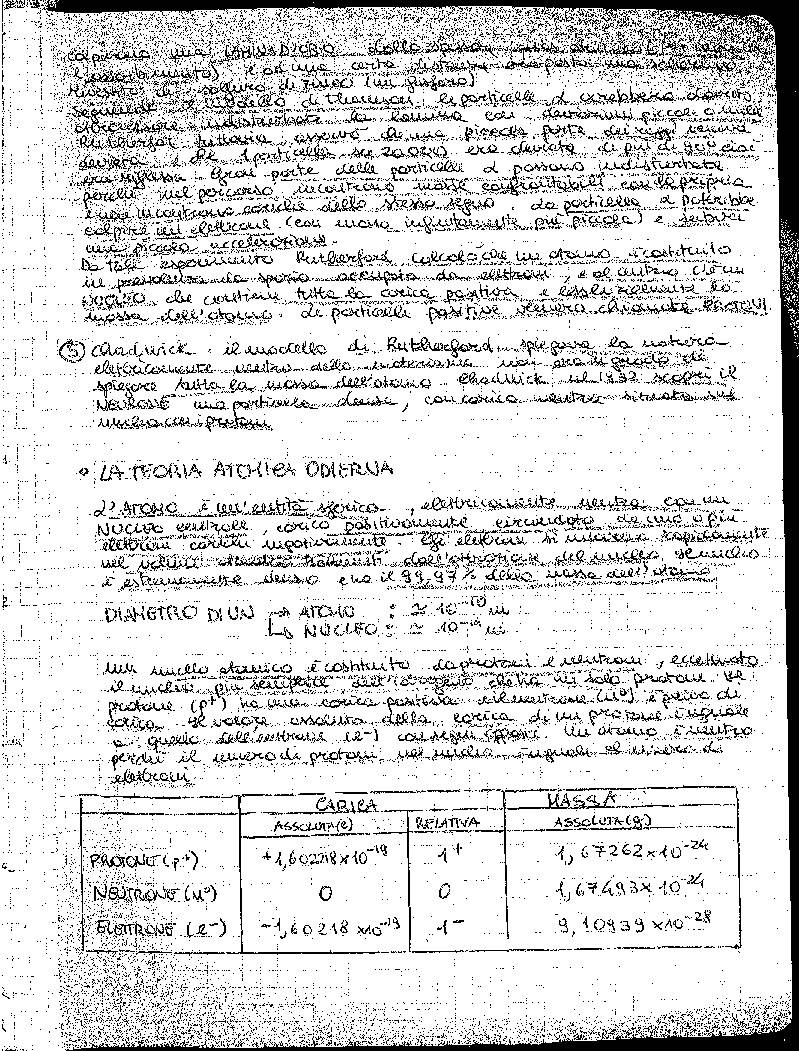 colpirono una LAMINA D'ORO dello
. e ad una certa distanza era posto uno schermo
rivestito di solfuro di zinco (un
Secondo il modello di Thomson, le particelle α avrebbero dovuto
attraversare indisturbate la lamina con deviazioni piccole o nulle
Rutherford tuttavia, osservò che una piccola parte dei raggi veniva
deviata, e che 1 particella su 20.000 era deviata di più di 90° cioè
era riflessa. Gran parte delle particelle α passano indisturbate
perché nel percorso incontrano masse confrontabili con la propria
e non incontrano cariche dello stesso segno. La particella α potrebbe
colpire un elettrone (con massa infinitamente più piccola) e subirei
una piccola accelerazione.
Da tale esperimento Rutherford calcolò che un atomo è costituito
in prevalenza da spazio occupato da elettroni, e al centro c'è un
NUCLEO che contiene tutta la carica positiva e essenzialmente la
massa dell'atomo. Le particelle positive vennero chiamate PROTONI.
5 Chadwick. il modello di Rutherford spiegava la natura
elettricamente neutra della materia ma non era in grado di
spiegare tutta la massa dell'atomo. Chadwick nel 1932 scoprì il
NEUTRONE una particella densa, con carica neutra situata nel
nucleo con i protoni
• LA TEORIA ATOMICA ODIERNA
L'ATOMO è un'entità sferica, elettricamente neutra con un
NUCLEO centrale, carico positivamente circondato da uno o più
elettroni carichi negativamente. Gli elettroni si muovono rapidamente
nel volume trattenuti dall'attrazione del nucleo. Il nucleo
è estremamente denso e ha il 99,97% della massa dell'atomo
DIAMETRO DI UN → ATOMO : ≃ 10⁻¹⁰ m
↳ NUCLEO : ≃ 10⁻¹⁴ m
Un nucleo atomico è costituito da protoni e neutroni, eccettuato
il nucleo più semplice dell'idrogeno che ha un solo protone. Il
protone (p⁺) ha una carica positiva e il neutrone (n⁰) è privo di
carica. Il valore assoluto della carica di un protone è uguale
a quello dell'elettrone (e⁻) con segni opposti. Un atomo è neutro
perché il numero di protoni nel nucleo è uguale al numero di
elettroni
CARICA MASSA
ASSOLUTA (C) RELATIVA ASSOLUTA (g)
PROTONE (p⁺) +1,60218×10⁻¹⁹ 1⁺ 1,67262×10⁻²⁴
NEUTRONE (n⁰) 0 0 1,67493×10⁻²⁴
ELETTRONE (e⁻) -1,60218×10⁻¹⁹ 1⁻ 9,10939×10⁻²⁸